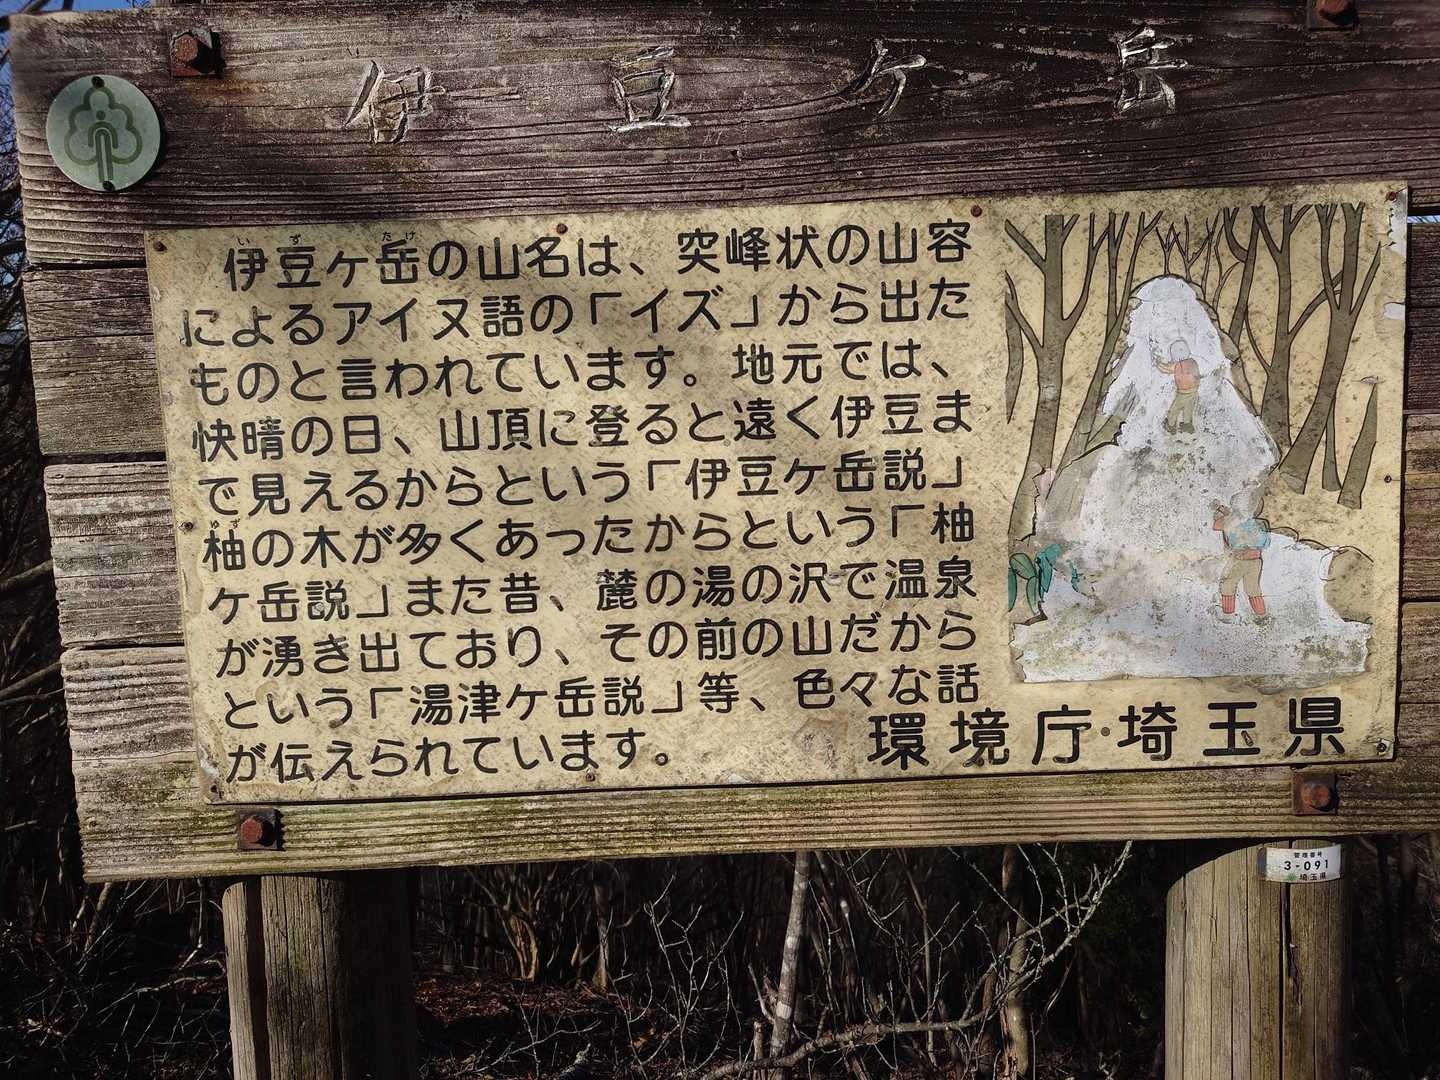 伊豆ケ岳
いずたけ
伊豆ヶ岳の山名は、突峰状の山容
によるアイヌ語の「イズ」から出た
ものと言われています。地元では、
快晴の日、山頂に登ると遠く伊豆ま
で見えるからという「伊豆ヶ岳説」
ゆず
柚の木が多くあったからという「柚
ケ岳説」また昔、麓の湯の沢で温泉
が湧き出ており、その前の山だから
という「湯津ケ岳説」等、色々な話
が伝えられています。
環境庁・埼玉県
管理番号
3-091
埼玉県